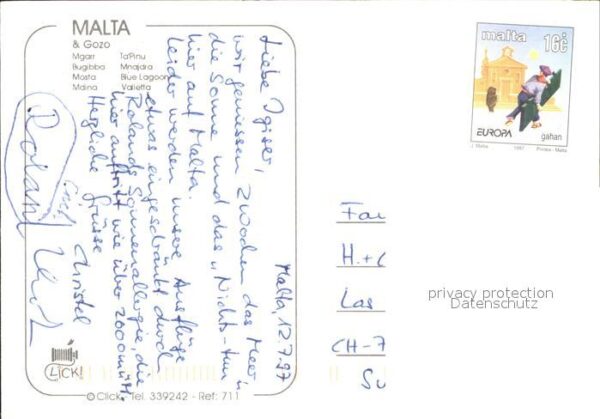 MALTA
& Gozo
Mgarr Ta'Pinu
Bugibba Mnajdra
Mosta Blue Lagoon
Mdina Valletta
malta 16c
EUROPA
gahan
J. Mallia 1997 Printex - Malta
Malta, 12.7.97
Liebe
wir geniessen 2 Wochen das Meer,
die Sonne und das "Nichts-tun"
hier auf Malta.
Leider werden unsere Ausflüge
etwas eingeschränkt durch
Rolands Sonnenallergie, die
hier auftritt wie über 2000 m ü.M.
Herzliche Grüsse
Christel
Roland
Fam
H. + C
Las
CH-7
Su
privacy protection
Datenschutz
CLICK!
© Click, Tel. 339242 - Ref: 711